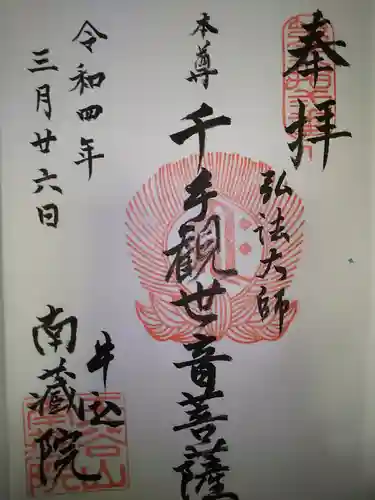 奉拝
弘法大師
本尊
千手観世音菩薩
令和四年
三月廿六日
牛込
南藏院